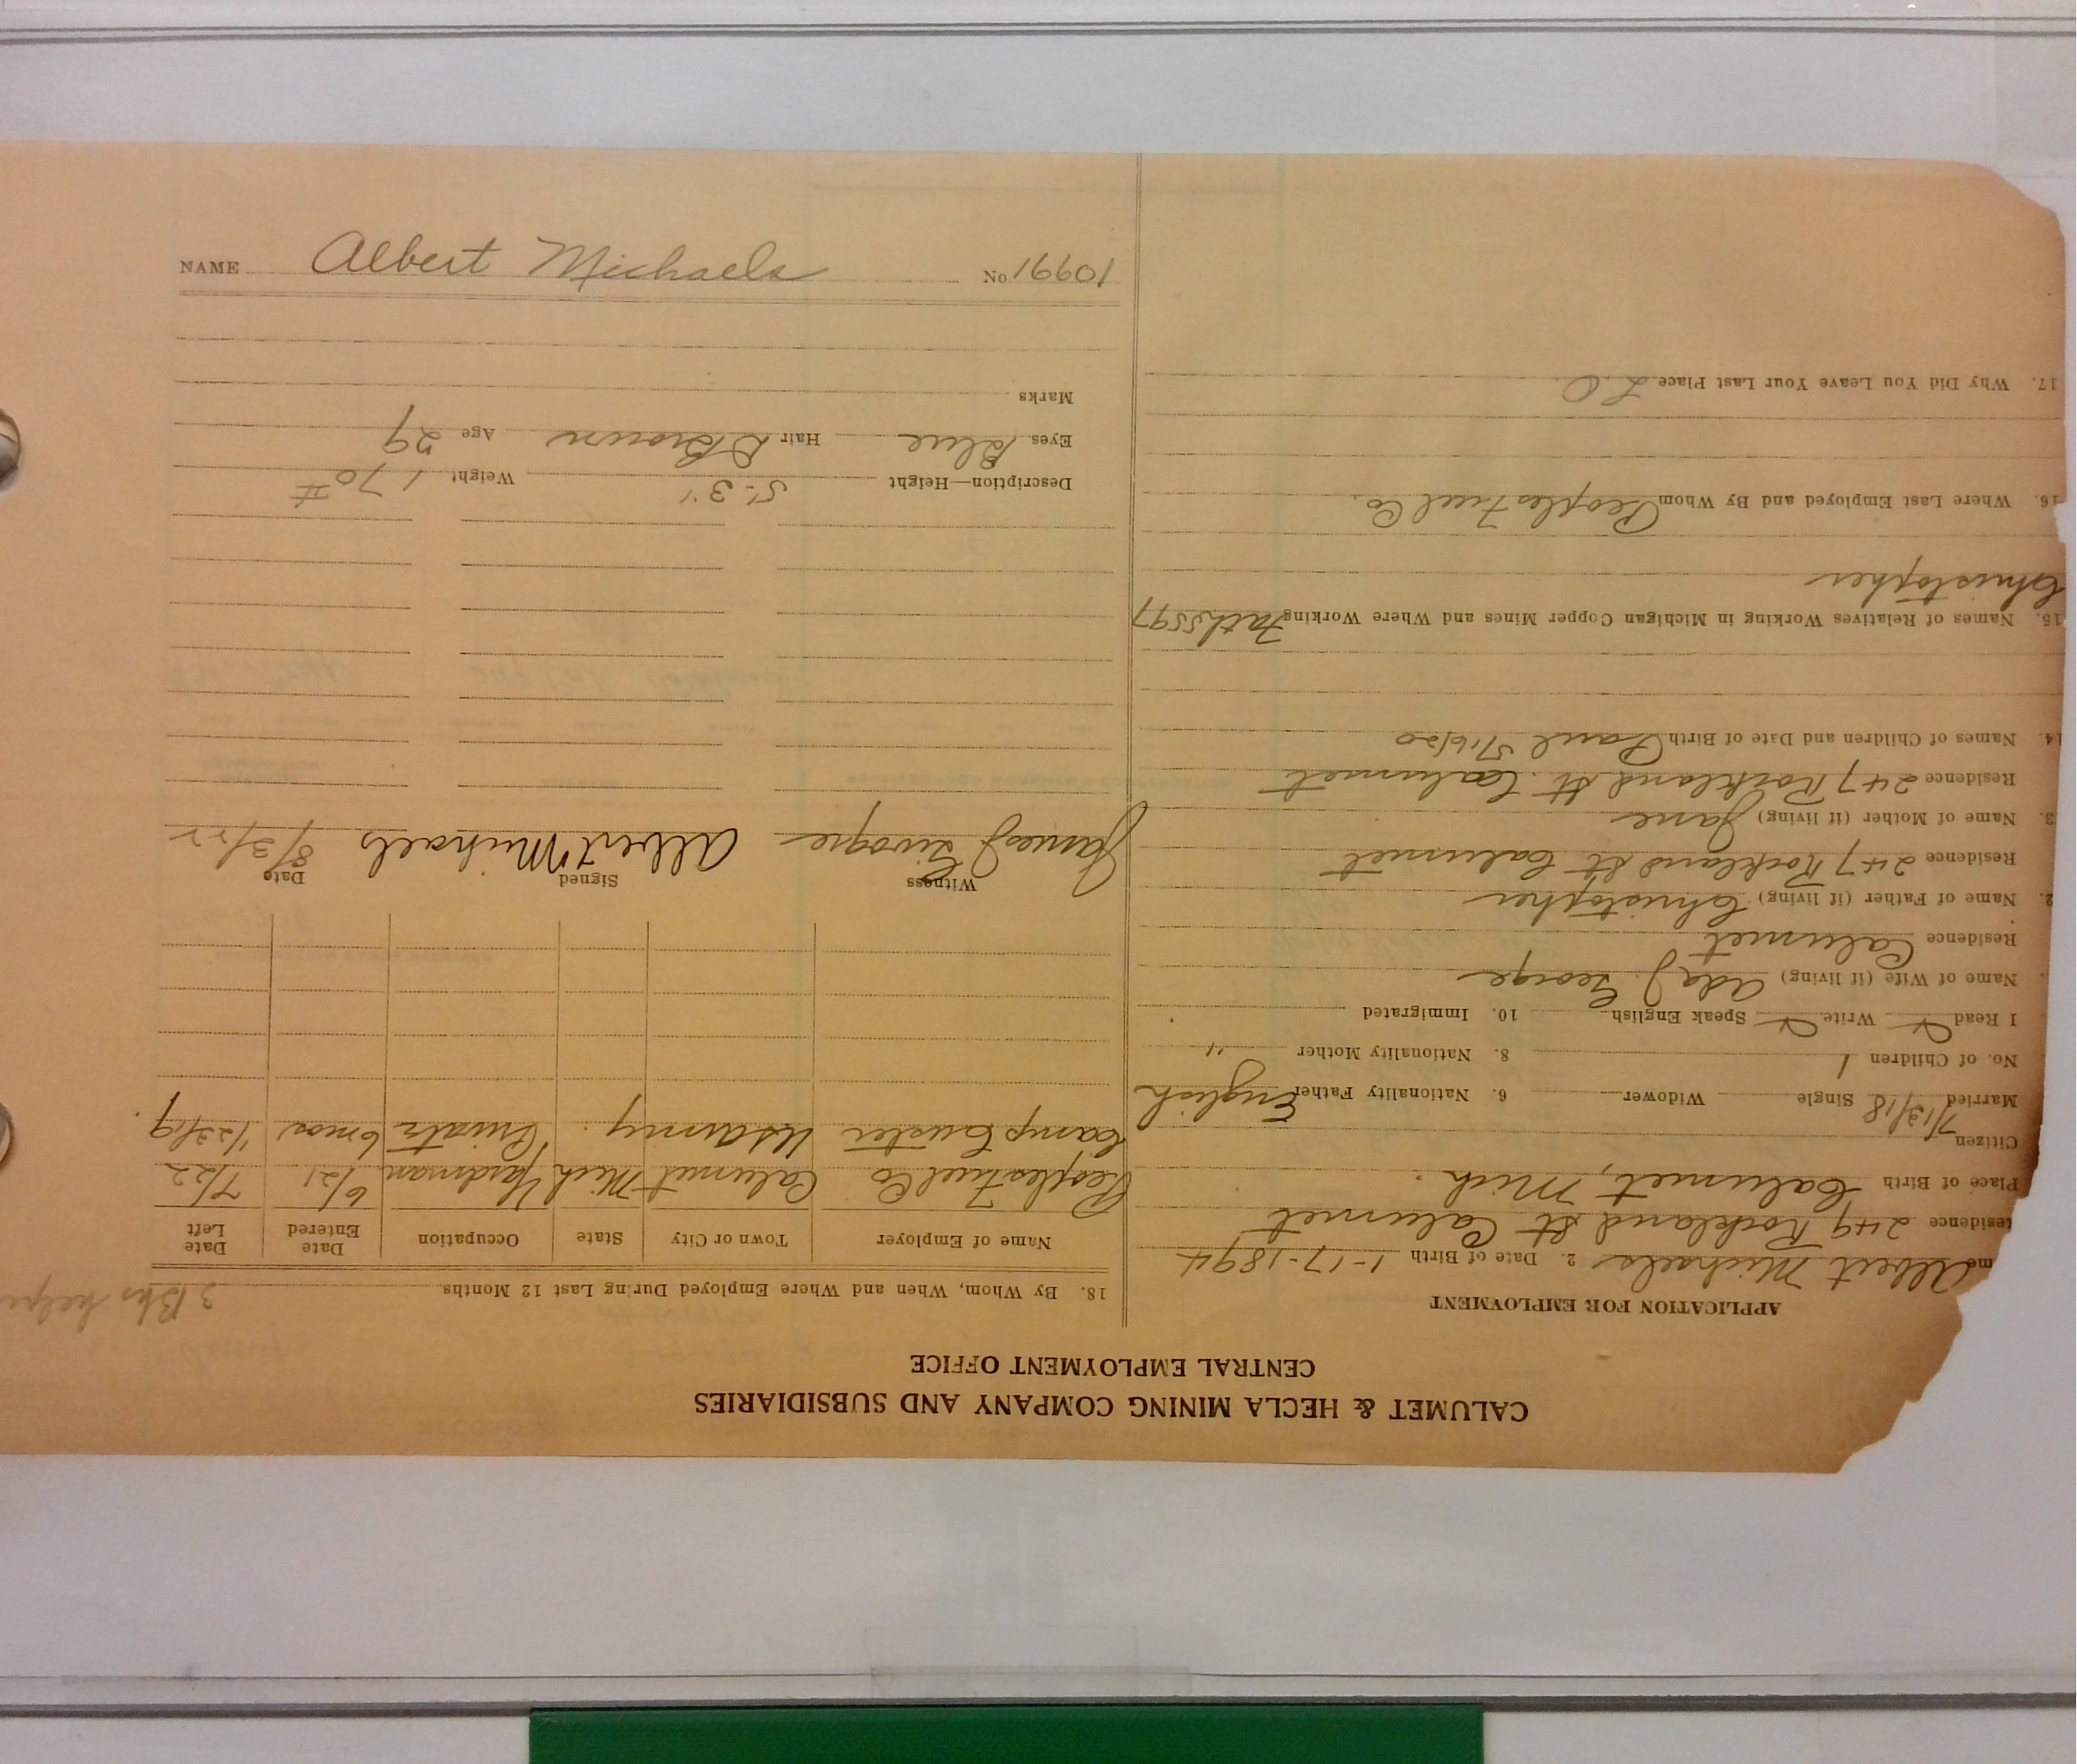 CALUMET & HECLA MINING COMPANY AND SUBSIDIARIES
CENTRAL EMPLOYMENT OFFICE
APPLICATION FOR EMPLOYMENT
me Albert Michaels 2. Date of Birth 1-17-1894
esidence 249 Rockland St Calumet
Place of Birth Calumet, Mich.
Citizen
Married 7/13/18 Single Widower 6. Nationality Father English
No. of Children 1 8. Nationality Mother "
I Read Write Speak English 10. Immigrated
Name of Wife (if living) Ada J. George
Residence Calumet
2. Name of Father (if living) Christopher
Residence 247 Rockland St Calumet
3. Name of Mother (if living) Jane
Residence 247 Rockland St. Calumet
14. Names of Children and Date of Birth Paul 5/16/20
15. Names of Relatives Working in Michigan Copper Mines and Where Working Fath 5597
Christopher
16. Where Last Employed and By Whom Peoples Fuel Co.
17. Why Did You Leave Your Last Place L.O
3 Bks helper
18. By Whom, When and Where Employed During Last 12 Months
Name of Employer Town or City State Occupation Date Entered Date Left
Peoples Fuel Co Calumet Mich Yardman 6/21 7/22
Camp Custer US Army Private 6 mos 1/23/19
Witness Signed Date
James J Albert Michaels 8/3/22
Description—Height 5'-3" Weight 170 #
Eyes Blue Hair D Brown Age 29
Marks
NAME Albert Michaels No 10991